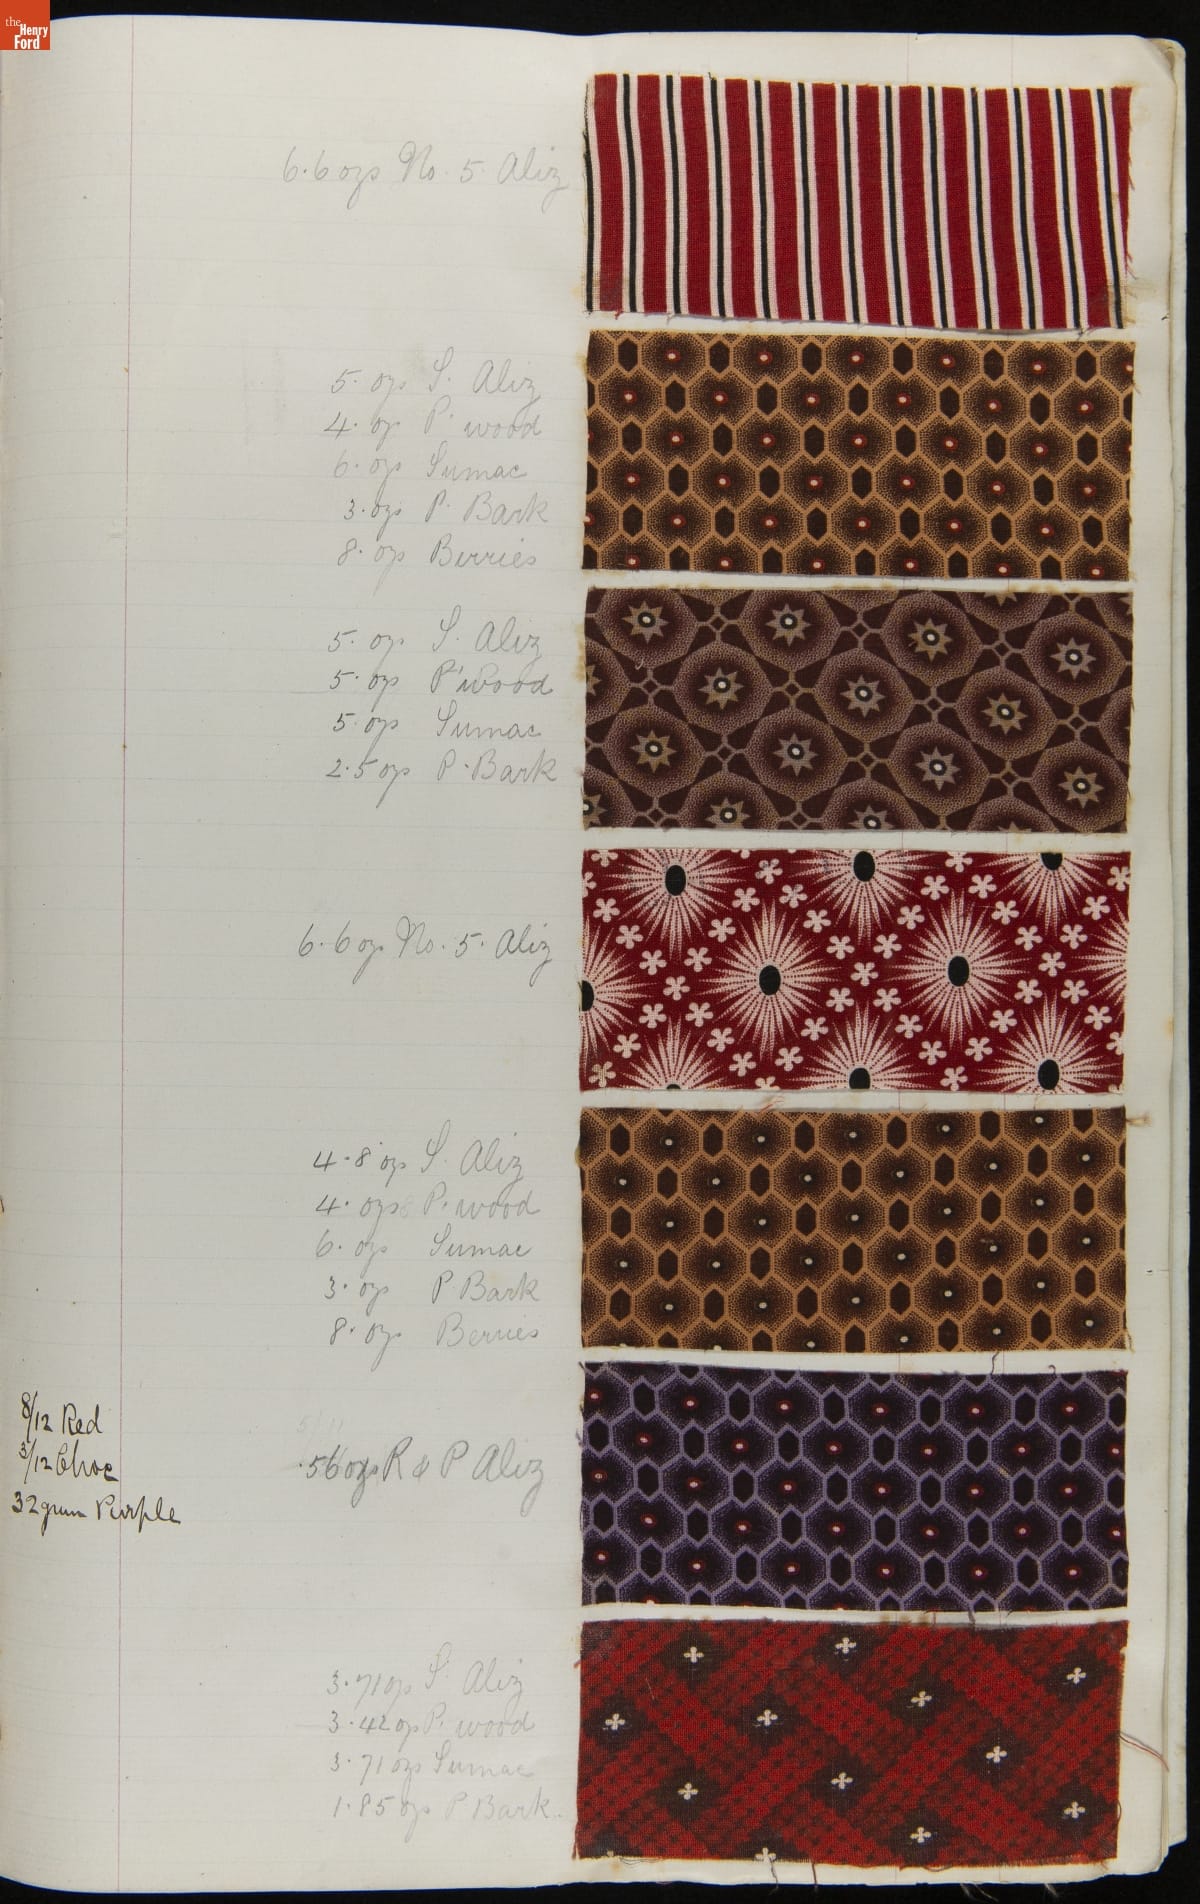 the
Henry
Ford
6.6 ozs No. 5. Aliz
5. ozs S. Aliz
4. oz P. wood
6. ozs Sumac
3. ozs P. Bark
8. ozs Berries
5. ozs S. Aliz
5. ozs P. wood
5. ozs Sumac
2.5 ozs P. Bark
6.6 ozs No. 5. Aliz
4.8 ozs S. Aliz
4. ozs P. wood
6. ozs Sumac
3. ozs P. Bark
8. ozs Berries
8/12 Red
3/12 Choc
32 gum Purple
.56 ozs R & P Aliz
3.71 ozs S. Aliz
3.42 ozs P. wood
3.71 ozs Sumac
1.85 ozs P. Bark